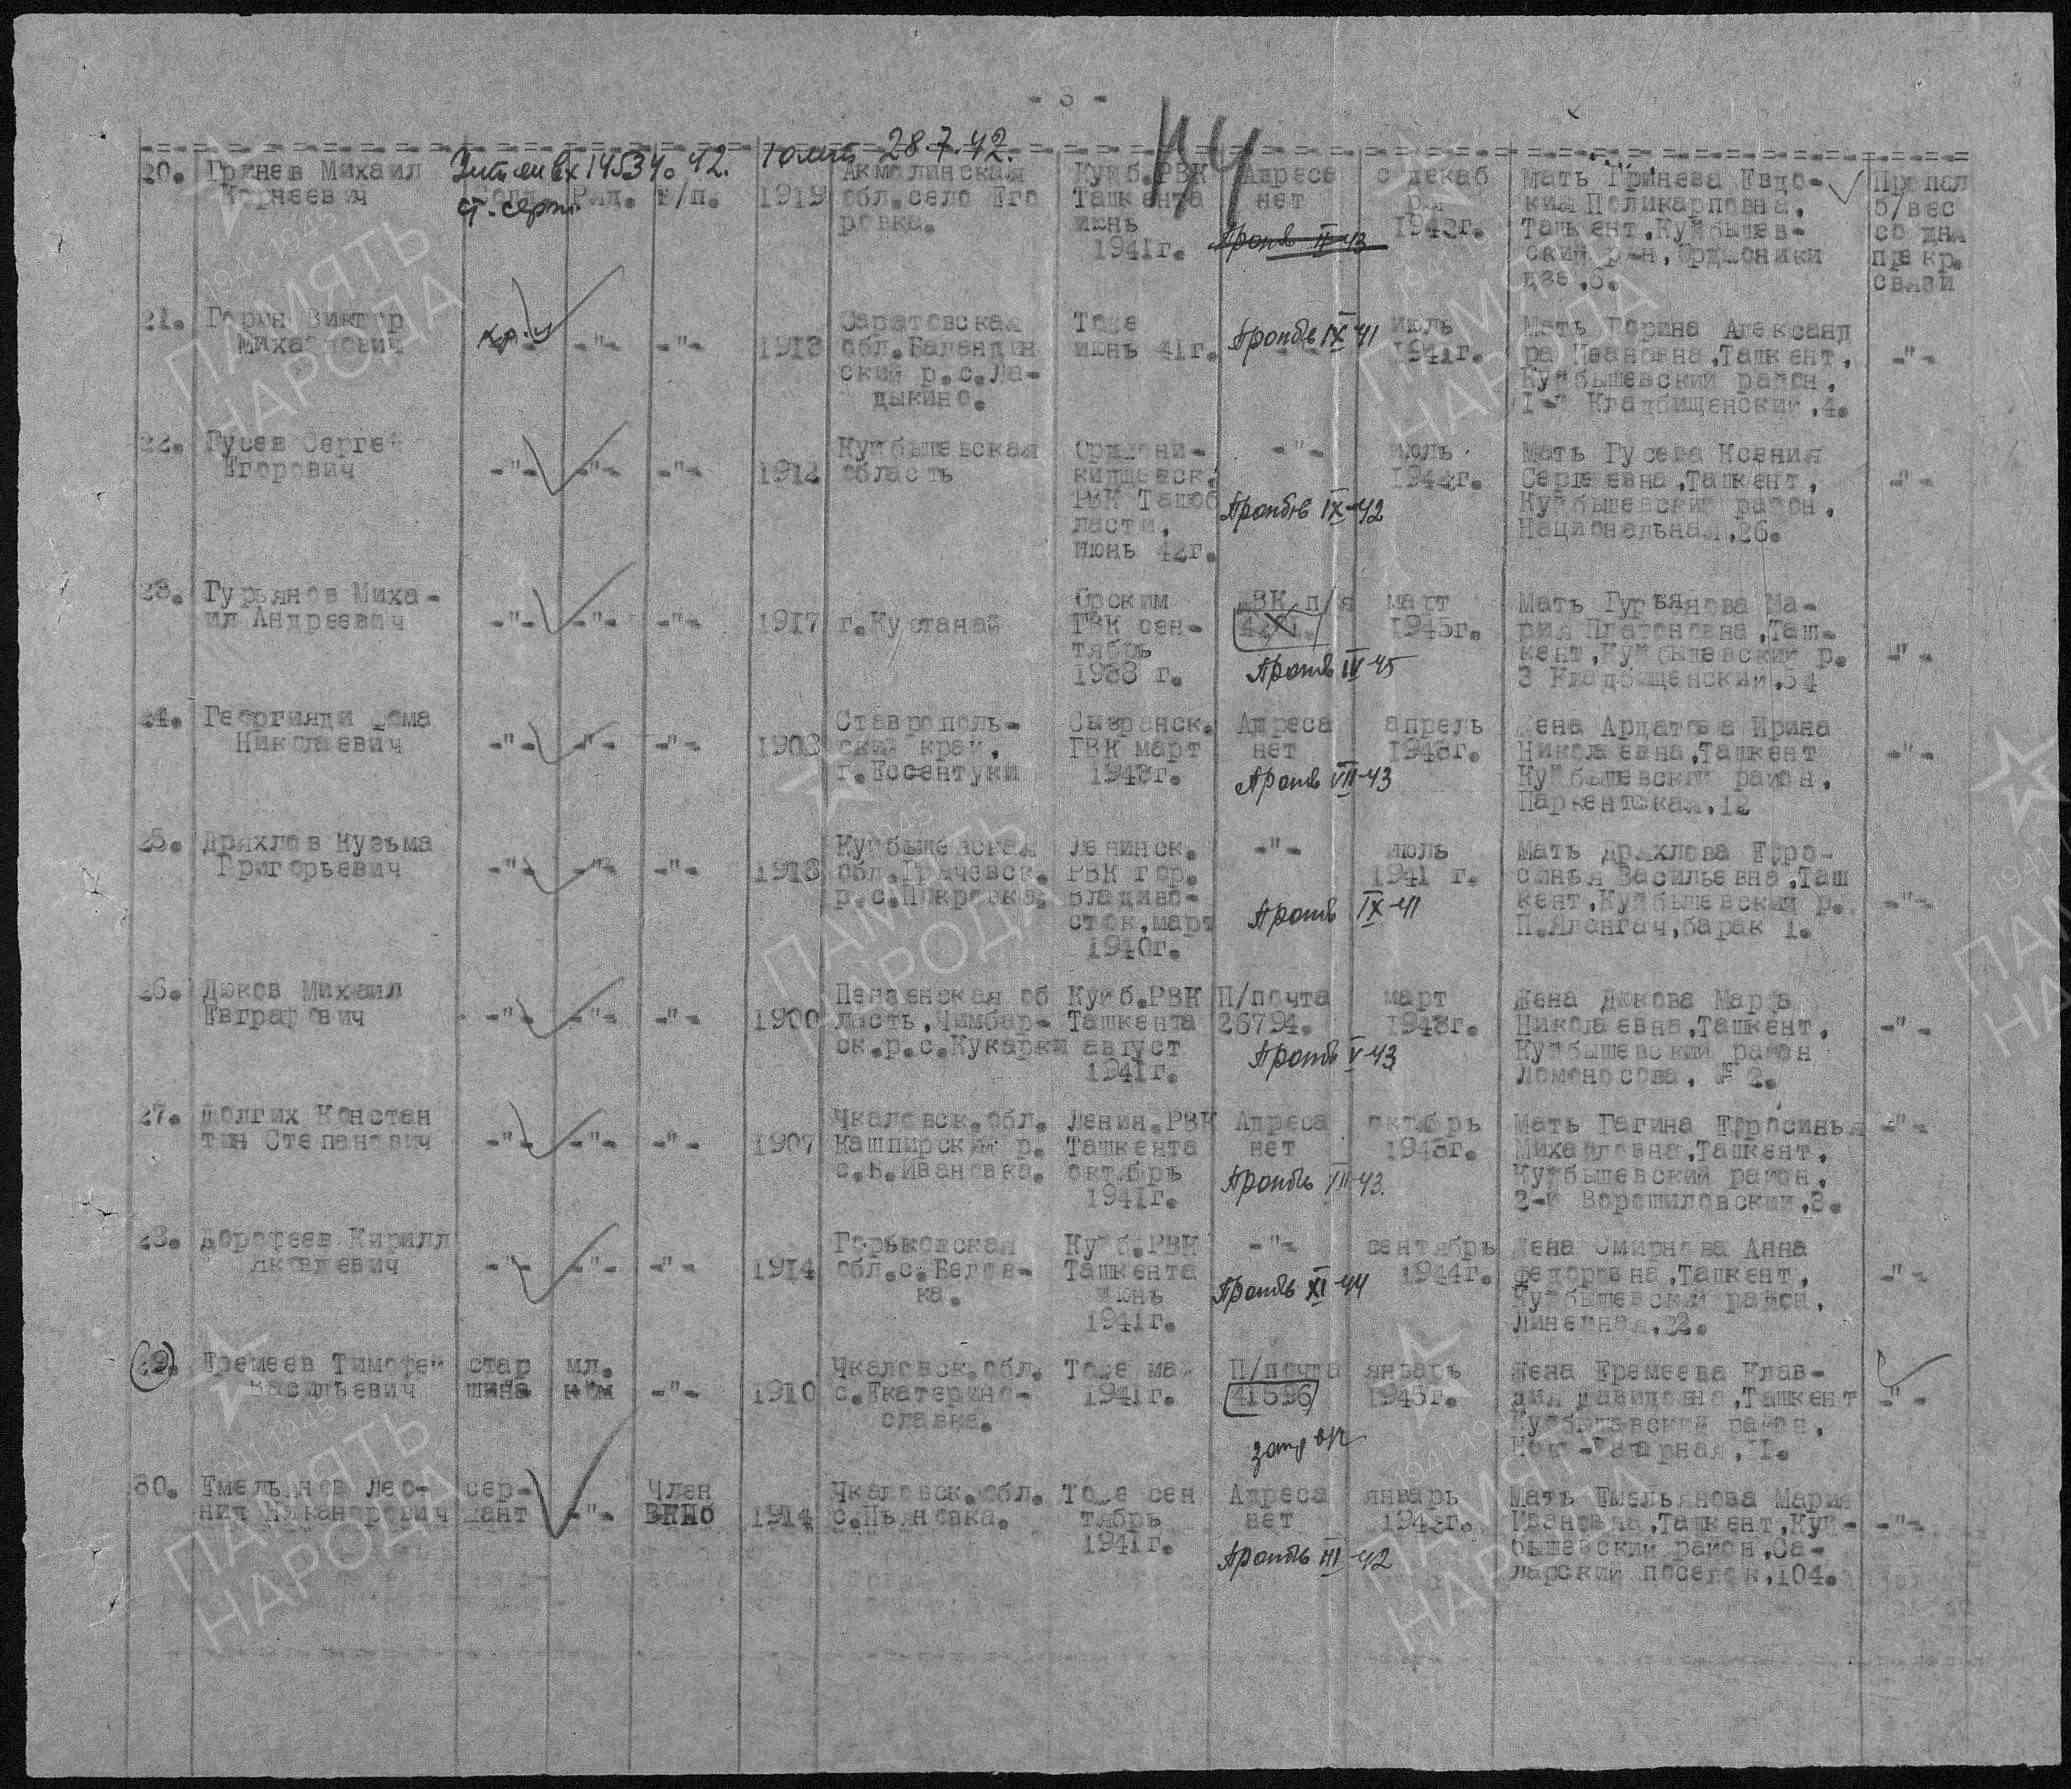 - 3 -
44
28.7.42.
20. Гринев Михаил Корнеевич
Солд. Ряд. б/п. 1919
ст. серж.
Акмолинская
обл.село Его
ровка.
Куйб.РВК
Ташкента
июнь
1941г.
Адреса
нет
с декаб
ря
1942г.
Мать Гринева Евдо-
кия Поликарповна,
Ташкент,Куйбышев-
ский р-н,Орджоники
дзе,5.
Пропал
б/вес
со дня
прекр.
связи
21. Горин Виктор
Михайлович
-"- -"- -"- 1913
Саратовская
обл.Баландин
ский р.с.Ла-
дыкино.
Тоже
июнь 41г.
Пропбв IX-41
июль
1941г.
Мать Горина Александ
ра Ивановна,Ташкент,
Куйбышевский район,
1-й Кладбищенский,4.
-"-
22. Гусев Сергей
Егорович
-"- -"- -"- 1912
Куйбышевская
область
Орджони-
кидзевск.
РВК Ташоб
ласти,
июнь 42г.
-"-
Пропбв IX-42
июль
1942г.
Мать Гусева Ксения
Сергеевна,Ташкент,
Куйбышевский район,
Национальная,26.
-"-
23. Гурьянов Миха-
ил Андреевич
-"- -"- -"- 1917 г.Кустанай
Орским
ГВК сен-
тябрь
1938 г.
Пропбв IV-45
март
1945г.
Мать Гурьянова Ма-
рия Платоновна,Таш-
кент,Куйбышевский р.
3 Кладбищенский,34
-"-
24. Георгияди Фома
Николаевич
-"- -"- -"- 1903
Ставрополь-
ский край,
г.Ессентуки
Сызранск.
ГВК март
1943г.
Адреса
нет
Пропбв VII-43
апрель
1943г.
Жена Ардатова Ирина
Николаевна,Ташкент
Куйбышевский район,
Паркентская,12
-"-
25. Дряхлов Кузьма
Григорьевич
-"- -"- -"- 1918
Куйбышевская
обл.Грачевск.
р.с.Покровка.
Ленинск.
РВК гор.
Владиво-
сток,март
1940г.
-"-
Пропбв IX-41
июль
1941 г.
Мать Дряхлова Ефро-
синья Васильевна,Таш
кент,Куйбышевский р.
П.Ялангач,барак 1.
-"-
26. Дюков Михаил
Евграфович
-"- -"- -"- 1900
Пензенская об
ласть,Чимбар-
ск.р.с.Кукарки
Куйб.РВК
Ташкента
август
1941г.
П/почта
26794.
Пропбв V-43
март
1943г.
Жена Дюкова Марфа
Николаевна,Ташкент,
Куйбышевский район
Ломоносова, № 2.
-"-
27. Долгих Констан
тин Степанович
-"- -"- -"- 1907
Чкаловск.обл.
Кашпирский р.
с.В.Ивановка.
Ленин.РВК
Ташкента
октябрь
1941г.
Адреса
нет
Пропбв VII-43.
октябрь
1943г.
Мать Гагина Ефросинья
Михайловна,Ташкент,
Куйбышевский район,
2-й Ворошиловский,8.
-"-
28. Дорофеев Кирилл
Яковлевич
-"- -"- -"- 1914
Горьковская
обл.с.Белов-
ка.
Куйб.РВК
Ташкента
июнь
1941г.
-"-
Пропбв XI-44
сентябрь
1944г.
Жена Смирнова Анна
Федоровна,Ташкент,
Куйбышевский район,
Линейная,22.
-"-
29. Еремеев Тимофей
Васильевич
стар
шина
мл.
ком
-"- 1910
Чкаловск.обл.
с.Екатерино-
славка.
Тоже май
1941г.
П/почта
41596
январь
1945г.
Жена Еремеева Клав-
дия Давидовна,Ташкент
Куйбышевский район,
-"-
30. Емельянов Лео-
нид Никанорович
сер-
жант
-"-
Член
ВКПб
1914
Чкаловск.обл.
с.Пьяновка.
Тоже сен
тябрь
1941г.
Адреса
нет
Пропбв III-42
январь
1942г.
Мать Емельянова Мария
Ивановна,Ташкент,Куй-
бышевский район,Са-
ларский поселок,104.
-"-
1941-1945
ПАМЯТЬ
НАРОДА